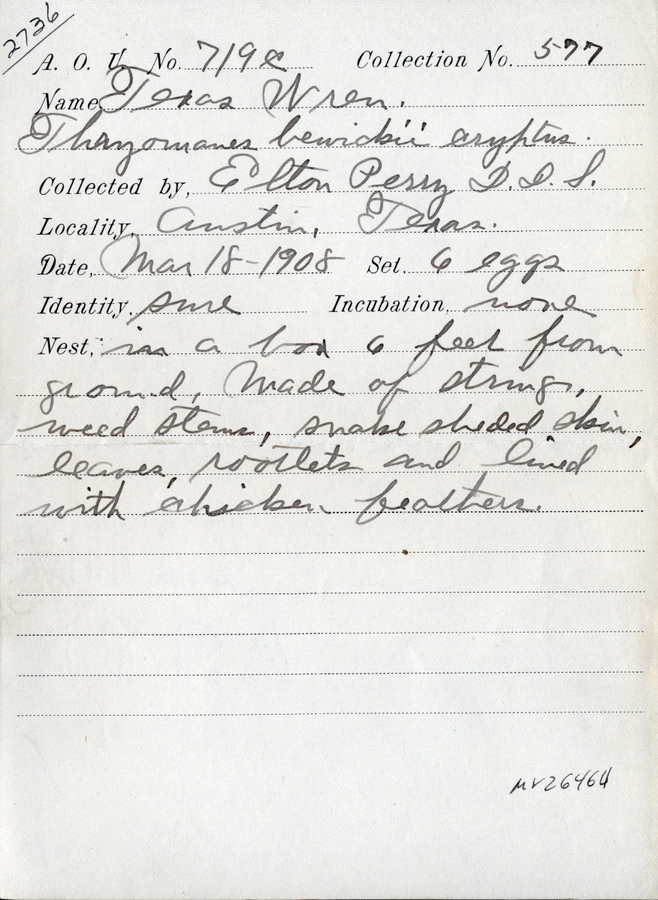 2736
A. O. U. No. 719c Collection No. 577
Name, Texas Wren.
Thryomanes bewickii cryptus.
Collected by, Elton Perry D.D.S.
Locality, Austin, Texas.
Date, Mar 18-1908 Set, 6 eggs
Identity, sure Incubation, none
Nest, in a box 6 feet from
ground, Made of strings,
weed stems, snake sheded skin,
leaves, rootlets and lined
with chicken feathers.
MV26464